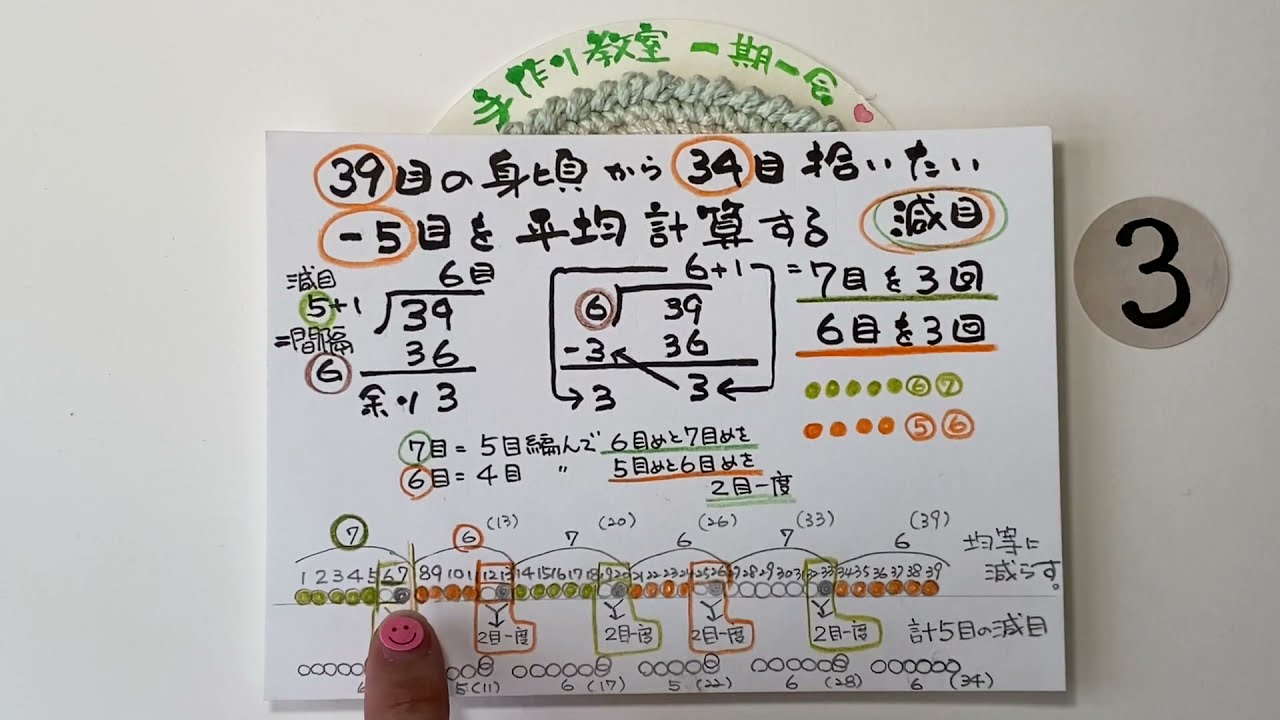 手作り教室 一期一会
39目の身頃から34目拾いたい
3
-5目を平均計算する 減目
減目 6目
5+1 39
=間隔 36
6 余り 3
6+1
6 39
-3 36
3 3
=7目を3回
6目を3回
6 7
5 6
7目=5目編んで 6目めと7目めを
6目=4目 〃 5目めと6目めを
2目一度
7 6 (13) 7 (20) 6 (26) 7 (33) 6 (39)
均等に
減らす。
1 2 3 4 5 6 7 8 9 10 11 12 13 14 15 16 17 18 19 20 21 22 23 24 25 26 27 28 29 30 31 32 33 34 35 36 37 38 39
2目一度 2目一度 2目一度 2目一度
計5目の減目
6 5(11) 6(17) 5(22) 6(28) 6(34)